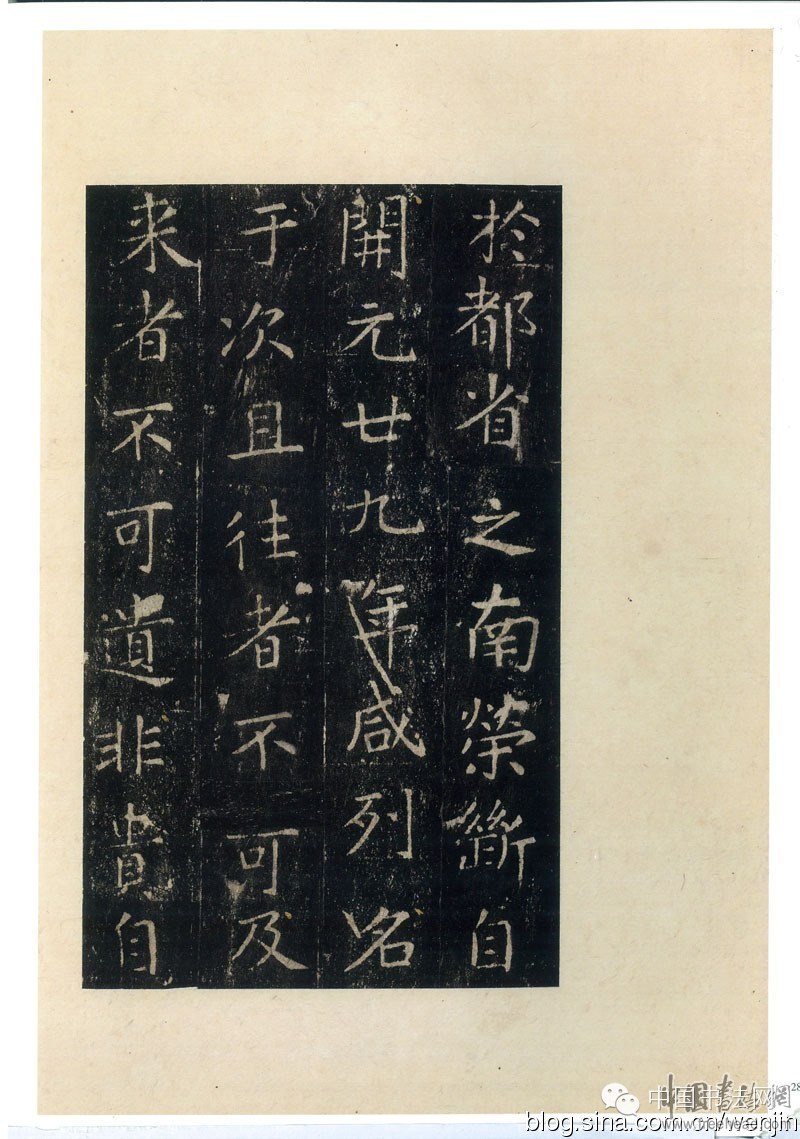 於都省之南榮斷自
開元廿九年咸列名
于次且往者不可及
来者不可遺非貴自
28
中国书法网
blog.sina.com.cn/wenjin